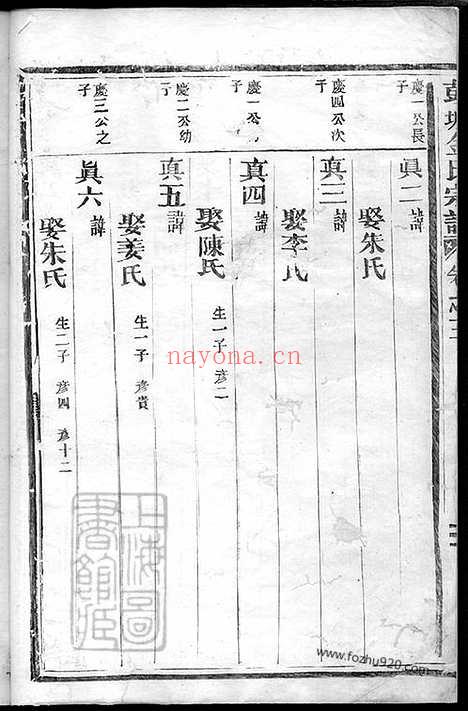 宗譜 卷之三
慶一公長子
眞二 諱
娶朱氏
慶四公次子
真三 諱
娶李氏
慶一公
子
真四 諱
娶陳氏 生一子 彥二
慶二公幼子
真五 諱
娶姜氏 生一子 彥貴
慶三公之子
眞六 諱
娶朱氏 生二子 彥四 彥十二
nayona.cn
上海圖書館藏
www.fozhu920.com